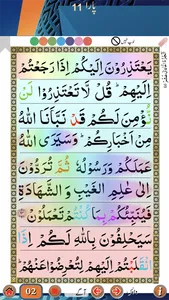 پارا 11
يَعْتَذِرُوْنَ اِلَيْكُمْ اِذَا رَجَعْتُمْ
اِلَيْهِمْ ؕ قُلْ لَّا تَعْتَذِرُوْا لَنْ
نُّؤْمِنَ لَكُمْ قَدْ نَبَّاَنَا اللّٰهُ
مِنْ اَخْبَارِكُمْ ؕ وَسَيَرَى اللّٰهُ
عَمَلَكُمْ وَرَسُوْلُهٗ ثُمَّ تُرَدُّوْنَ
اِلٰى عٰلِمِ الْغَيْبِ وَ الشَّهَادَةِ
فَيُنَبِّئُكُمْ بِمَا كُنْتُمْ تَعْمَلُوْنَ
سَيَحْلِفُوْنَ بِاللّٰهِ لَكُمْ اِذَا
انْقَلَبْتُمْ اِلَيْهِمْ لِتُعْرِضُوْا عَنْهُمْ ؕ
02